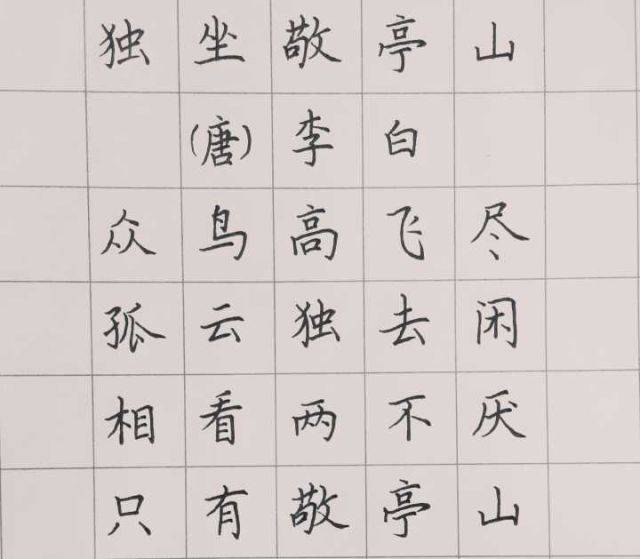 独坐敬亭山
(唐)李白
众鸟高飞尽
孤云独去闲
相看两不厌
只有敬亭山